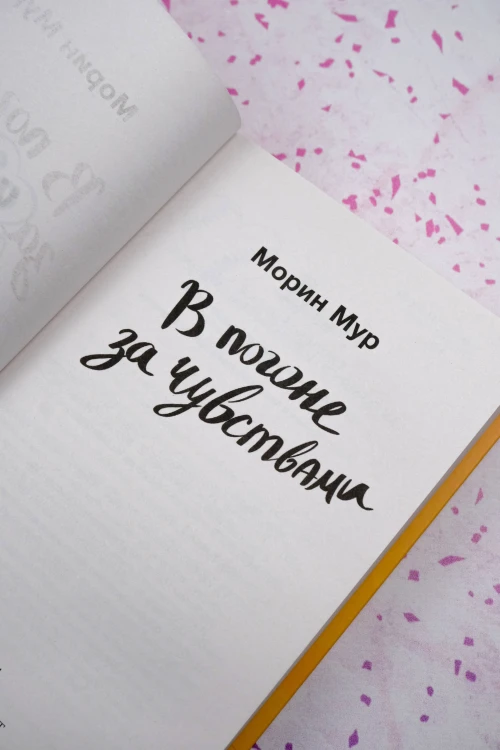 Морин Мур
В погоне
за чувствами